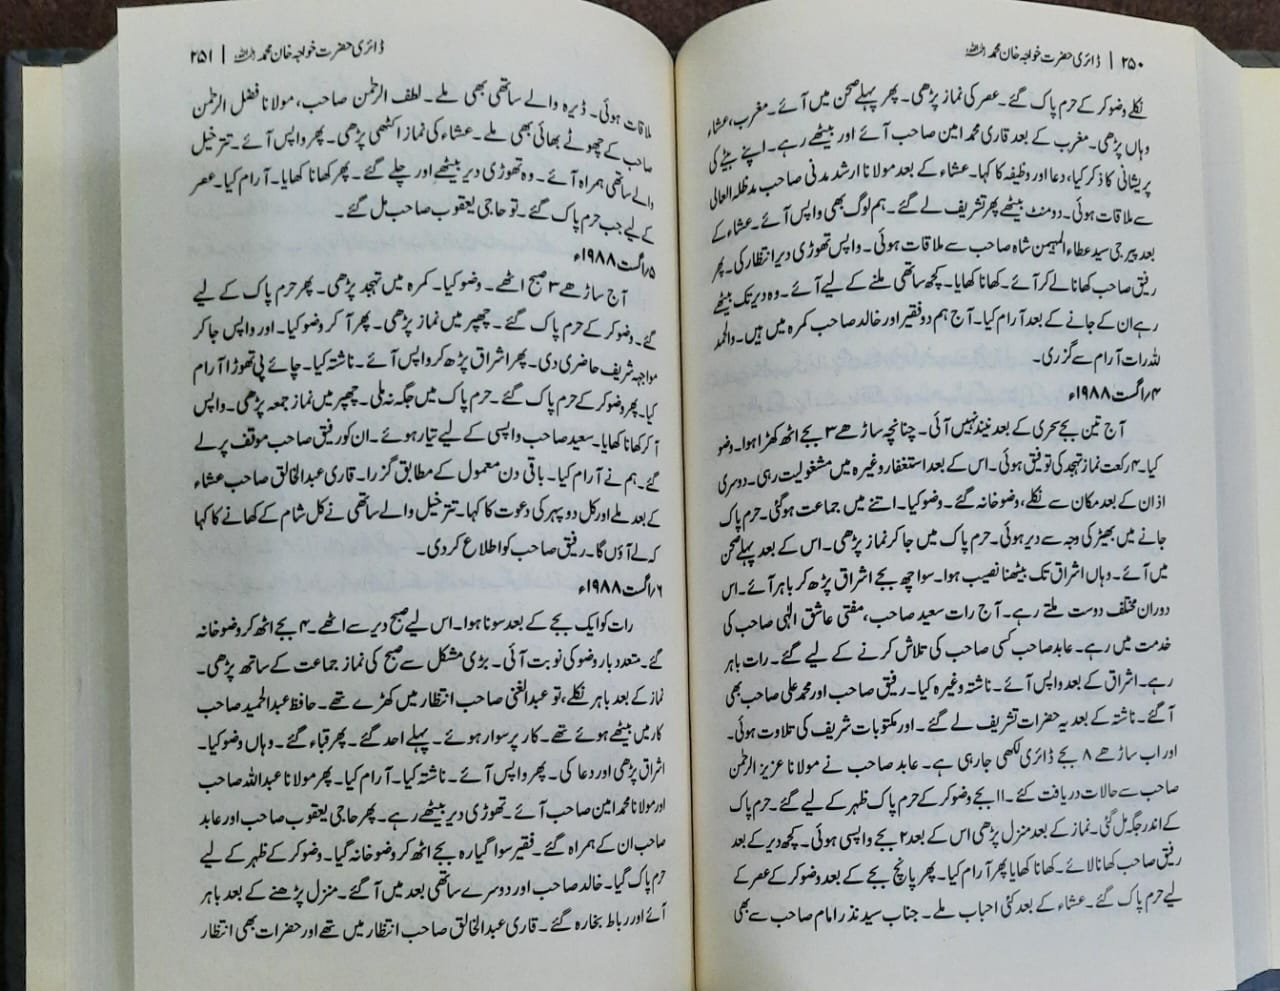 ۲۵۰ | ڈائری حضرت خواجہ خان محمد رحمہ اللہ
نکلے وضو کر کے حرم پاک گئے۔ عصر کی نماز پڑھی۔ پھر پہلے صحن میں آئے۔ مغرب، عشاء
وہاں پڑھی۔ مغرب کے بعد قاری محمد امین صاحب آئے اور بیٹھے رہے۔ اپنے بیٹے کی
پریشانی کا ذکر کیا، دعا اور وظیفہ کا کہا۔ عشاء کے بعد مولانا ارشد مدنی صاحب مدظلہ العالی
سے ملاقات ہوئی۔ دو منٹ بیٹھے پھر تشریف لے گئے۔ ہم لوگ بھی واپس آئے۔ عشاء کے
بعد پیر جی سید عطاء المہیمن شاہ صاحب سے ملاقات ہوئی۔ واپس تھوڑی دیر انتظار کی۔ پھر
رفیق صاحب کھانا لے کر آئے۔ کھانا کھایا۔ کچھ ساتھی ملنے کے لیے آئے۔ وہ دیر تک بیٹھے
رہے ان کے جانے کے بعد آرام کیا۔ آج ہم دو فقیر اور خالد صاحب کمرہ میں ہیں۔ والحمد
للہ رات آرام سے گزری۔
۴؍ اگست ۱۹۸۸ء
آج تین بجے سحری کے بعد نیند نہیں آئی۔ چنانچہ ساڑھے ۳ بجے اٹھ کھڑا ہوا۔ وضو
کیا۔ ۴ رکعت نماز تہجد کی توفیق ہوئی۔ اس کے بعد استغفار وغیرہ میں مشغولیت رہی۔ دوسری
اذان کے بعد مکان سے نکلے، وضو خانہ گئے۔ وضو کیا۔ اتنے میں جماعت ہو گئی۔ حرم پاک
جانے میں بھیڑ کی وجہ سے دیر ہوئی۔ حرم پاک میں جا کر نماز پڑھی۔ اس کے بعد پہلے صحن
میں آئے۔ وہاں اشراق تک بیٹھنا نصیب ہوا۔ سوا چھ بجے اشراق پڑھ کر باہر آئے۔ اس
دوران مختلف دوست ملتے رہے۔ آج رات سعید صاحب، مفتی عاشق الٰہی صاحب کی
خدمت میں رہے۔ عابد صاحب کسی صاحب کی تلاش کرنے کے لیے گئے۔ رات باہر
رہے۔ اشراق کے بعد واپس آئے۔ ناشتہ وغیرہ کیا۔ رفیق صاحب اور محمد علی صاحب بھی
آگئے۔ ناشتہ کے بعد یہ حضرات تشریف لے گئے۔ اور مکتوبات شریف کی تلاوت ہوئی۔
اور اب ساڑھے ۸ بجے ڈائری لکھی جا رہی ہے۔ عابد صاحب نے مولانا عزیز الرحمٰن
صاحب سے حالات دریافت کئے۔ ۱۱ بجے وضو کر کے حرم پاک ظہر کے لیے گئے۔ حرم پاک
کے اندر جگہ مل گئی۔ نماز کے بعد منزل پڑھی اس کے بعد ۲ بجے واپسی ہوئی۔ کچھ دیر کے بعد
رفیق صاحب کھانا لائے۔ کھانا کھایا پھر آرام کیا۔ پھر پانچ بجے کے بعد وضو کر کے عصر کے
لیے حرم پاک گئے۔ عشاء کے بعد کئی احباب ملے۔ جناب سید نذر امام صاحب سے بھی
ڈائری حضرت خواجہ خان محمد رحمہ اللہ | ۲۵۱
ملاقات ہوئی۔ ڈیرہ والے ساتھی بھی ملے۔ لطف الرحمٰن صاحب، مولانا فضل الرحمٰن
صاحب کے چھوٹے بھائی بھی ملے۔ عشاء کی نماز اکٹھی پڑھی۔ پھر واپس آئے۔ تتر خیل
والے ساتھی ہمراہ آئے۔ وہ تھوڑی دیر بیٹھے اور چلے گئے۔ پھر کھانا کھایا۔ آرام کیا۔ عصر
کے لیے جب حرم پاک گئے۔ تو حاجی یعقوب صاحب مل گئے۔
۵؍ اگست ۱۹۸۸ء
آج ساڑھے ۳ صبح اٹھے۔ وضو کیا۔ کمرہ میں تہجد پڑھی۔ پھر حرم پاک کے لیے
گئے۔ وضو کر کے حرم پاک گئے۔ چھپر میں نماز پڑھی۔ پھر آ کر وضو کیا۔ اور واپس جا کر
مواجہہ شریف حاضری دی۔ پھر اشراق پڑھ کر واپس آئے۔ ناشتہ کیا۔ چائے پی تھوڑا آرام
کیا۔ پھر وضو کر کے حرم پاک گئے۔ حرم پاک میں جگہ نہ ملی۔ چھپر میں نماز جمعہ پڑھی۔ واپس
آ کر کھانا کھایا۔ سعید صاحب واپسی کے لیے تیار ہوئے۔ ان کو رفیق صاحب موقف پر لے
گئے۔ ہم نے آرام کیا۔ باقی دن معمول کے مطابق گزرا۔ قاری عبدالخالق صاحب عشاء
کے بعد ملے اور کل دوپہر کی دعوت کا کہا۔ تتر خیل والے ساتھی نے کل شام کے کھانے کا کہا
کہ لے آؤں گا۔ رفیق صاحب کو اطلاع کر دی۔
۶؍ اگست ۱۹۸۸ء
رات کو ایک بجے کے بعد سونا ہوا۔ اس لیے صبح دیر سے اٹھے۔ ۴ بجے اٹھ کر وضو خانہ
گئے۔ متعدد بار وضو کی نوبت آئی۔ بڑی مشکل سے صبح کی نماز جماعت کے ساتھ پڑھی۔
نماز کے بعد باہر نکلے، تو عبدالغنی صاحب انتظار میں کھڑے تھے۔ حافظ عبدالحمید صاحب
کار میں بیٹھے ہوئے تھے۔ کار پر سوار ہوئے۔ پہلے احد گئے۔ پھر قباء گئے۔ وہاں وضو کیا۔
اشراق پڑھی اور دعا کی۔ پھر واپس آئے۔ ناشتہ کیا۔ آرام کیا۔ پھر مولانا عبداللہ صاحب
اور مولانا محمد امین صاحب آئے۔ تھوڑی دیر بیٹھے رہے۔ پھر حاجی یعقوب صاحب اور عابد
صاحب ان کے ہمراہ گئے۔ فقیر سوا گیارہ بجے اٹھ کر وضو خانہ گیا۔ وضو کر کے ظہر کے لیے
حرم پاک گیا۔ خالد صاحب اور دوسرے ساتھی بعد میں آ گئے۔ منزل پڑھنے کے بعد باہر
آئے اور رباط بخارہ گئے۔ قاری عبدالخالق صاحب انتظار میں تھے اور حضرات بھی انتظار